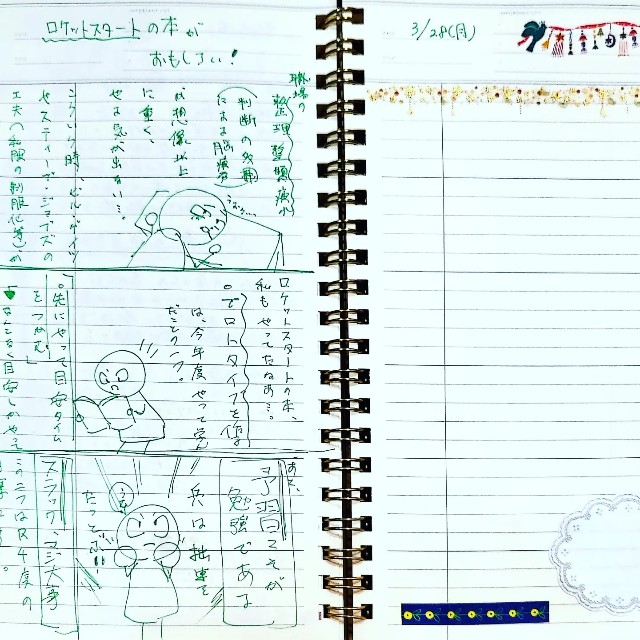 ロケットスタートの本が
おもしろい!
3/28(月)
職場の
整理整頓の痛み
判断の多用
による脳疲労
は想像以上
に重く、
やる気が出ない…。
こういう時、ビル・ゲイツ
やスティーブ・ジョブズの
工夫(私服の制服化等)が
ロケットスタートの本、
私もやってたなあ…。
は、今年度やって党
だこと
先にやって目安タイム
をつかむ
なんとなく目安しかやって
あと、
予習こそが
勉強である
兵は拙速を
たっとぶ!!
スラック、マジ大事